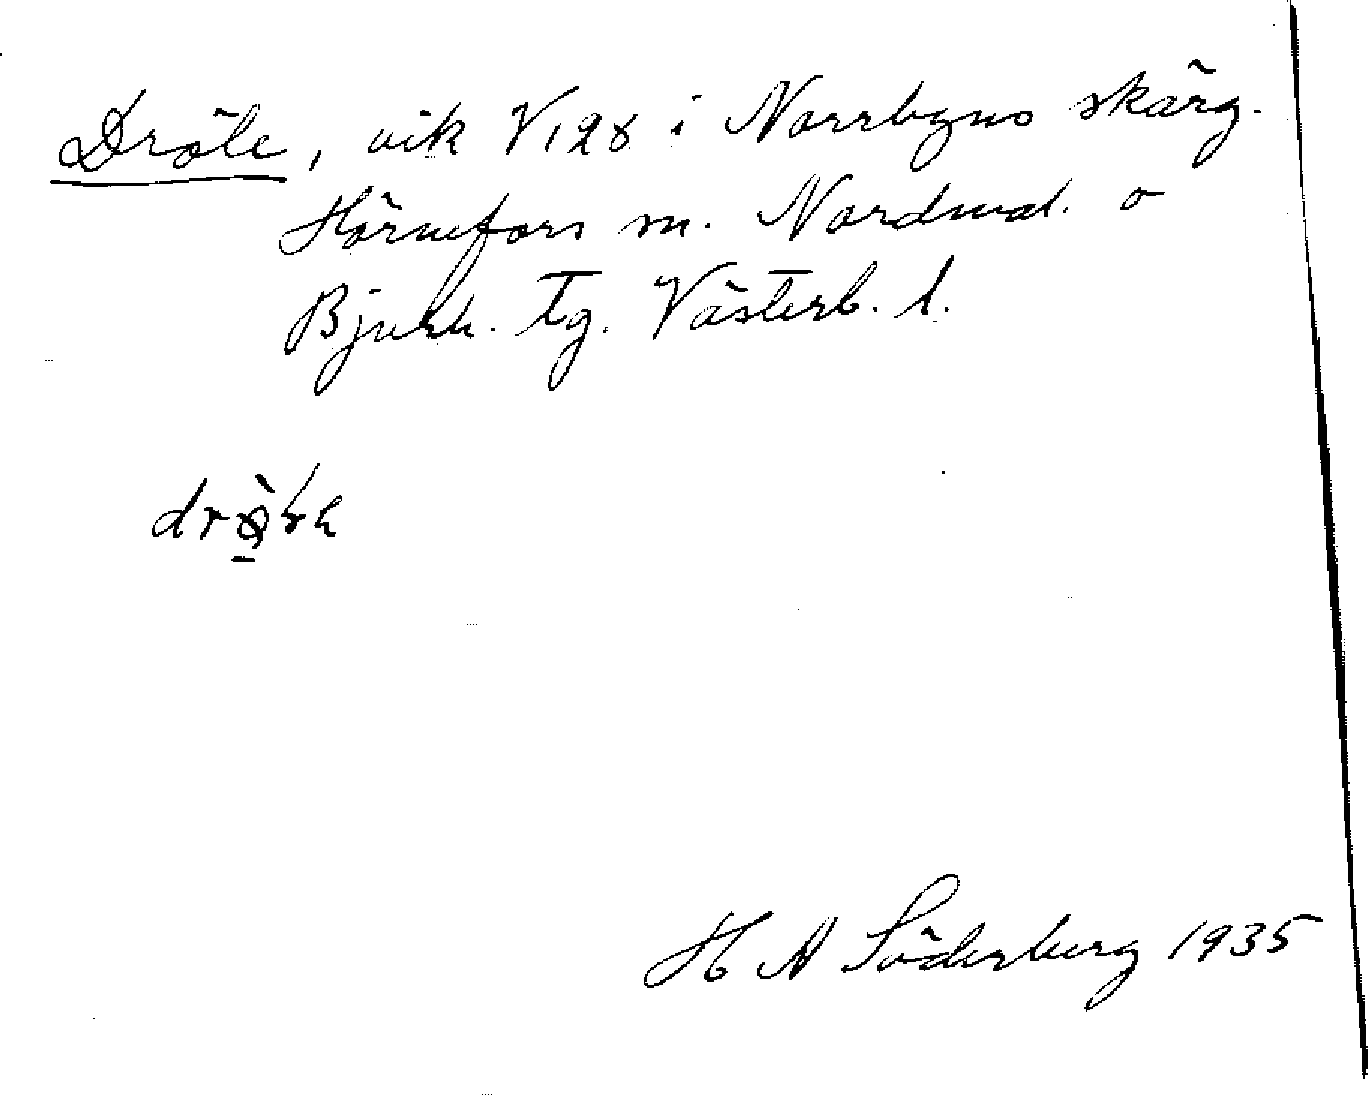 Dröle, vik V128 i Norrbyns skärg.
Hörnefors sn. Nordmal. o
Bjurh. tg. Västerb. l.
H A Söderberg 1935